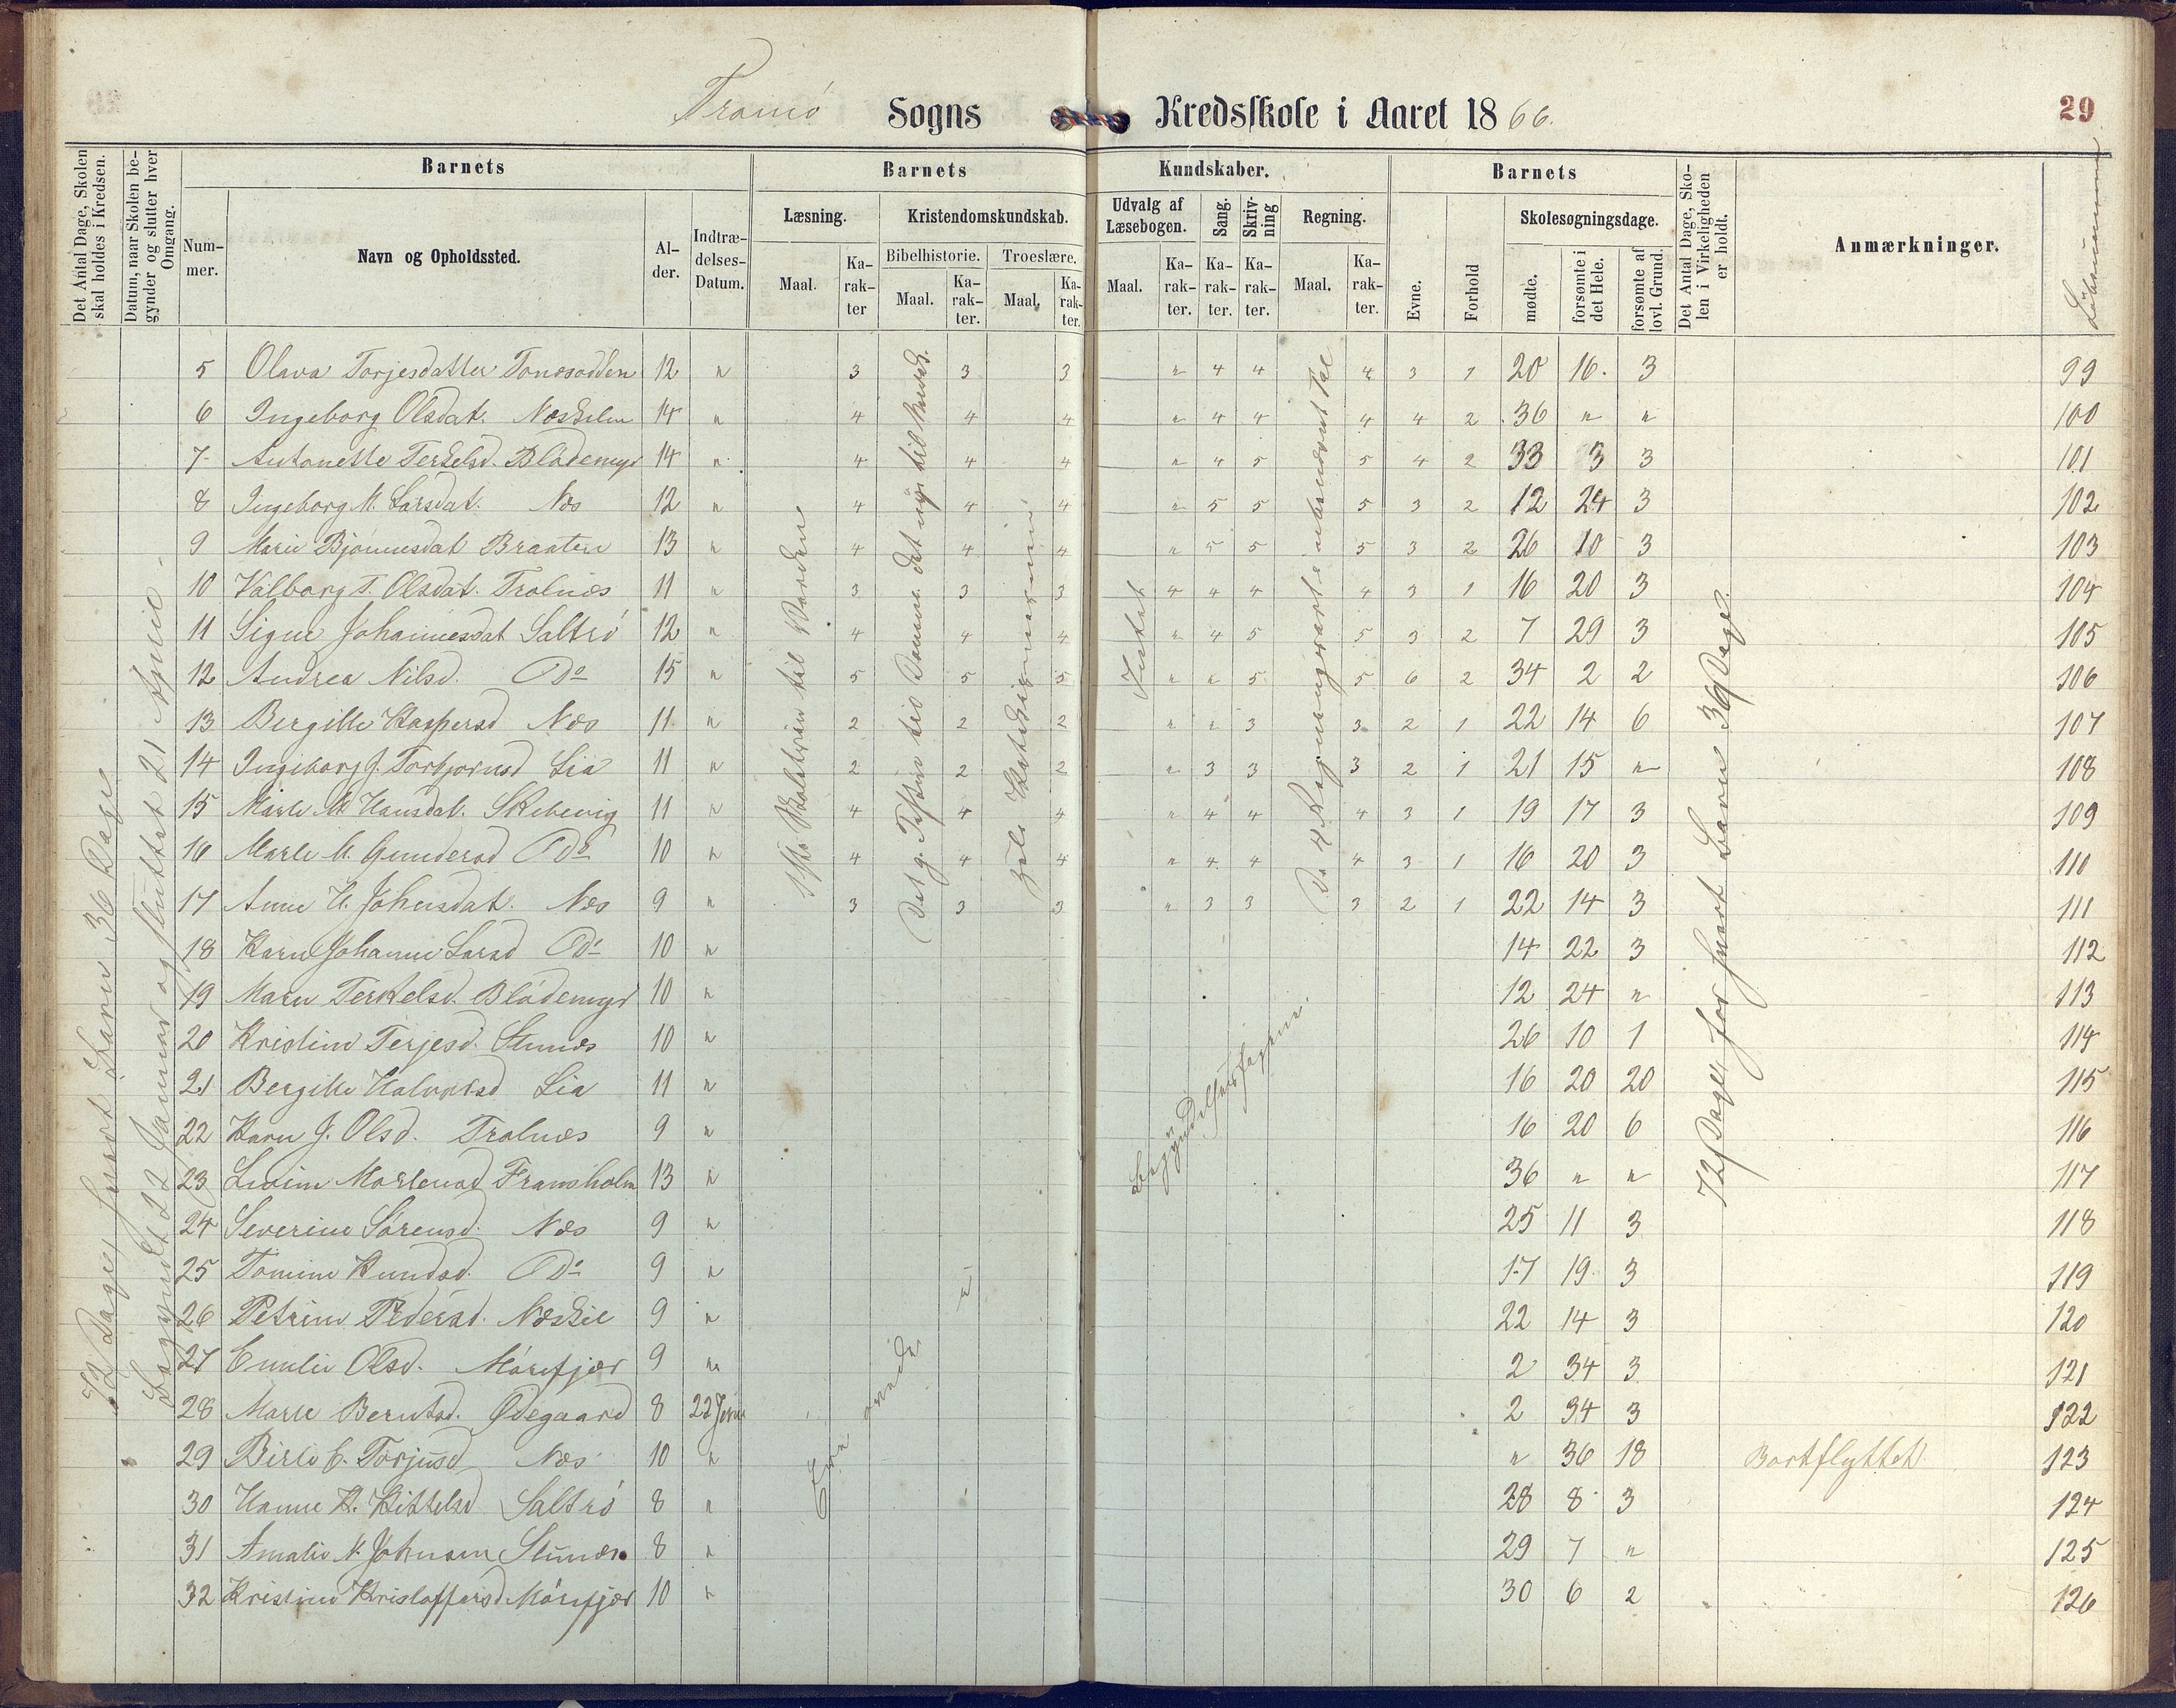 Tromö Sogns Kredsskole i Aaret 1866.
29
Det Antal Dage, Skolen skal holdes i Kredsen.
Datum, naar Skolen begynder og slutter hver Omgang.
Barnets
Nummer.
Navn og Opholdssted.
Alder.
Indtrædelses-Datum.
Barnets Kundskaber.
Læsning.
Maal.
Karakter
Kristendomskundskab.
Bibelhistorie.
Maal.
Karakter.
Troeslære.
Maal.
Karakter.
Udvalg af Læsebogen.
Maal.
Karakter.
Sang.
Karakter.
Skrivning
Karakter.
Regning.
Maal.
Karakter.
Barnets
Evne.
Forhold
Skolesøgningsdage.
mødte.
forsømte i det Hele.
forsømte af lovl. Grund.
Det Antal Dage, Skolen i Virkeligheden er holdt.
Anmærkninger.
Löbenummer
72 Dage, hvert Barn 36 Dage
Begyndt 22 Januar og sluttet 21 April.
Intet
De 4 Regningsarter i ubenævnt Tal
Begyndelsesfagene.
72 Dage, for hvert Barn 36 Dage.
5 Olava Torjesdatter Tonesodden 12 " 3 3 3 " 4 4 4 3 1 20 16. 3 99
6 Ingeborg Olsdat. Neskilen 14 " 4 4 4 " 4 4 4 4 2 36 " " 100
7 Antonette Terkelsd. Blödemyr 14 " 4 4 4 " 4 5 5 4 2 33 3 3 101
8 Ingeborg M. Larsdat. Næs 12 " 4 4 4 " 5 5 5 3 2 12 24 3 102
9 Marie Bjönnesdat Braaten 13 " 4 4 4 " 5 5 5 3 2 26 10 3 103
10 Valborg T. Olsdat. Tralnæs 11 " 3 3 3 4 4 4 4 3 1 16 20 3 104
11 Signe Johannesdat Saltrö 12 " 4 4 4 " 4 5 5 3 2 7 29 3 105
12 Andrea Nilsd. Do 15 " 5 5 5 " " 5 5 6 2 34 2 2 106
13 Bergitte Kaspersd Næs 11 " 2 2 2 " " 3 3 2 1 22 14 6 107
14 Ingeborg J. Torbjornsd Lia 11 " 2 2 2 " 3 3 3 2 1 21 15 " 108
15 Marte M Hansdat. Skibevig 11 " 4 4 4 " 4 4 4 3 1 19 17 3 109
16 Marte M. Gundersd Do 10 " 4 4 4 " 4 4 4 3 1 16 20 3 110
17 Anne H. Johnsdat. Næs 9 " 3 3 3 " 3 3 3 2 1 22 14 3 111
18 Karen Johanne Larsd Do 10 " 14 22 3 112
19 Maren Terkelsd. Blödemyr 10 " 12 24 " 113
20 Kristine Terjesd. Stunæs 10 " 26 10 1 114
21 Bergitte Halvorsd Lia 11 " 16 20 20 115
22 Karen J. Olsd. Tralnæs 9 " 16 20 6 116
23 Lovine Mortensd Fransholm 13 " 36 " " 117
24 Severine Sörensd. Næs 9 " 25 11 3 118
25 Tomine Knudsd. Do 9 " 17 19 3 119
26 Petrine Pedersd. Næskil 9 " 22 14 3 120
27 Emilie Olsd. Mörefjær 9 " 2 34 3 121
28 Marte Berntsd. Ødegaard 8 22 Janu 2 34 3 122
29 Birte C. Torjusd Næs 10 " " 36 18 Bortflyttet 123
30 Hanne K. Kittelsd Saltrö 8 " 28 8 3 124
31 Amalie N. Johnsen Stunæs 8 " 29 7 " 125
32 Kristine Kristoffersd Mörefjær 10 " 30 6 2 126